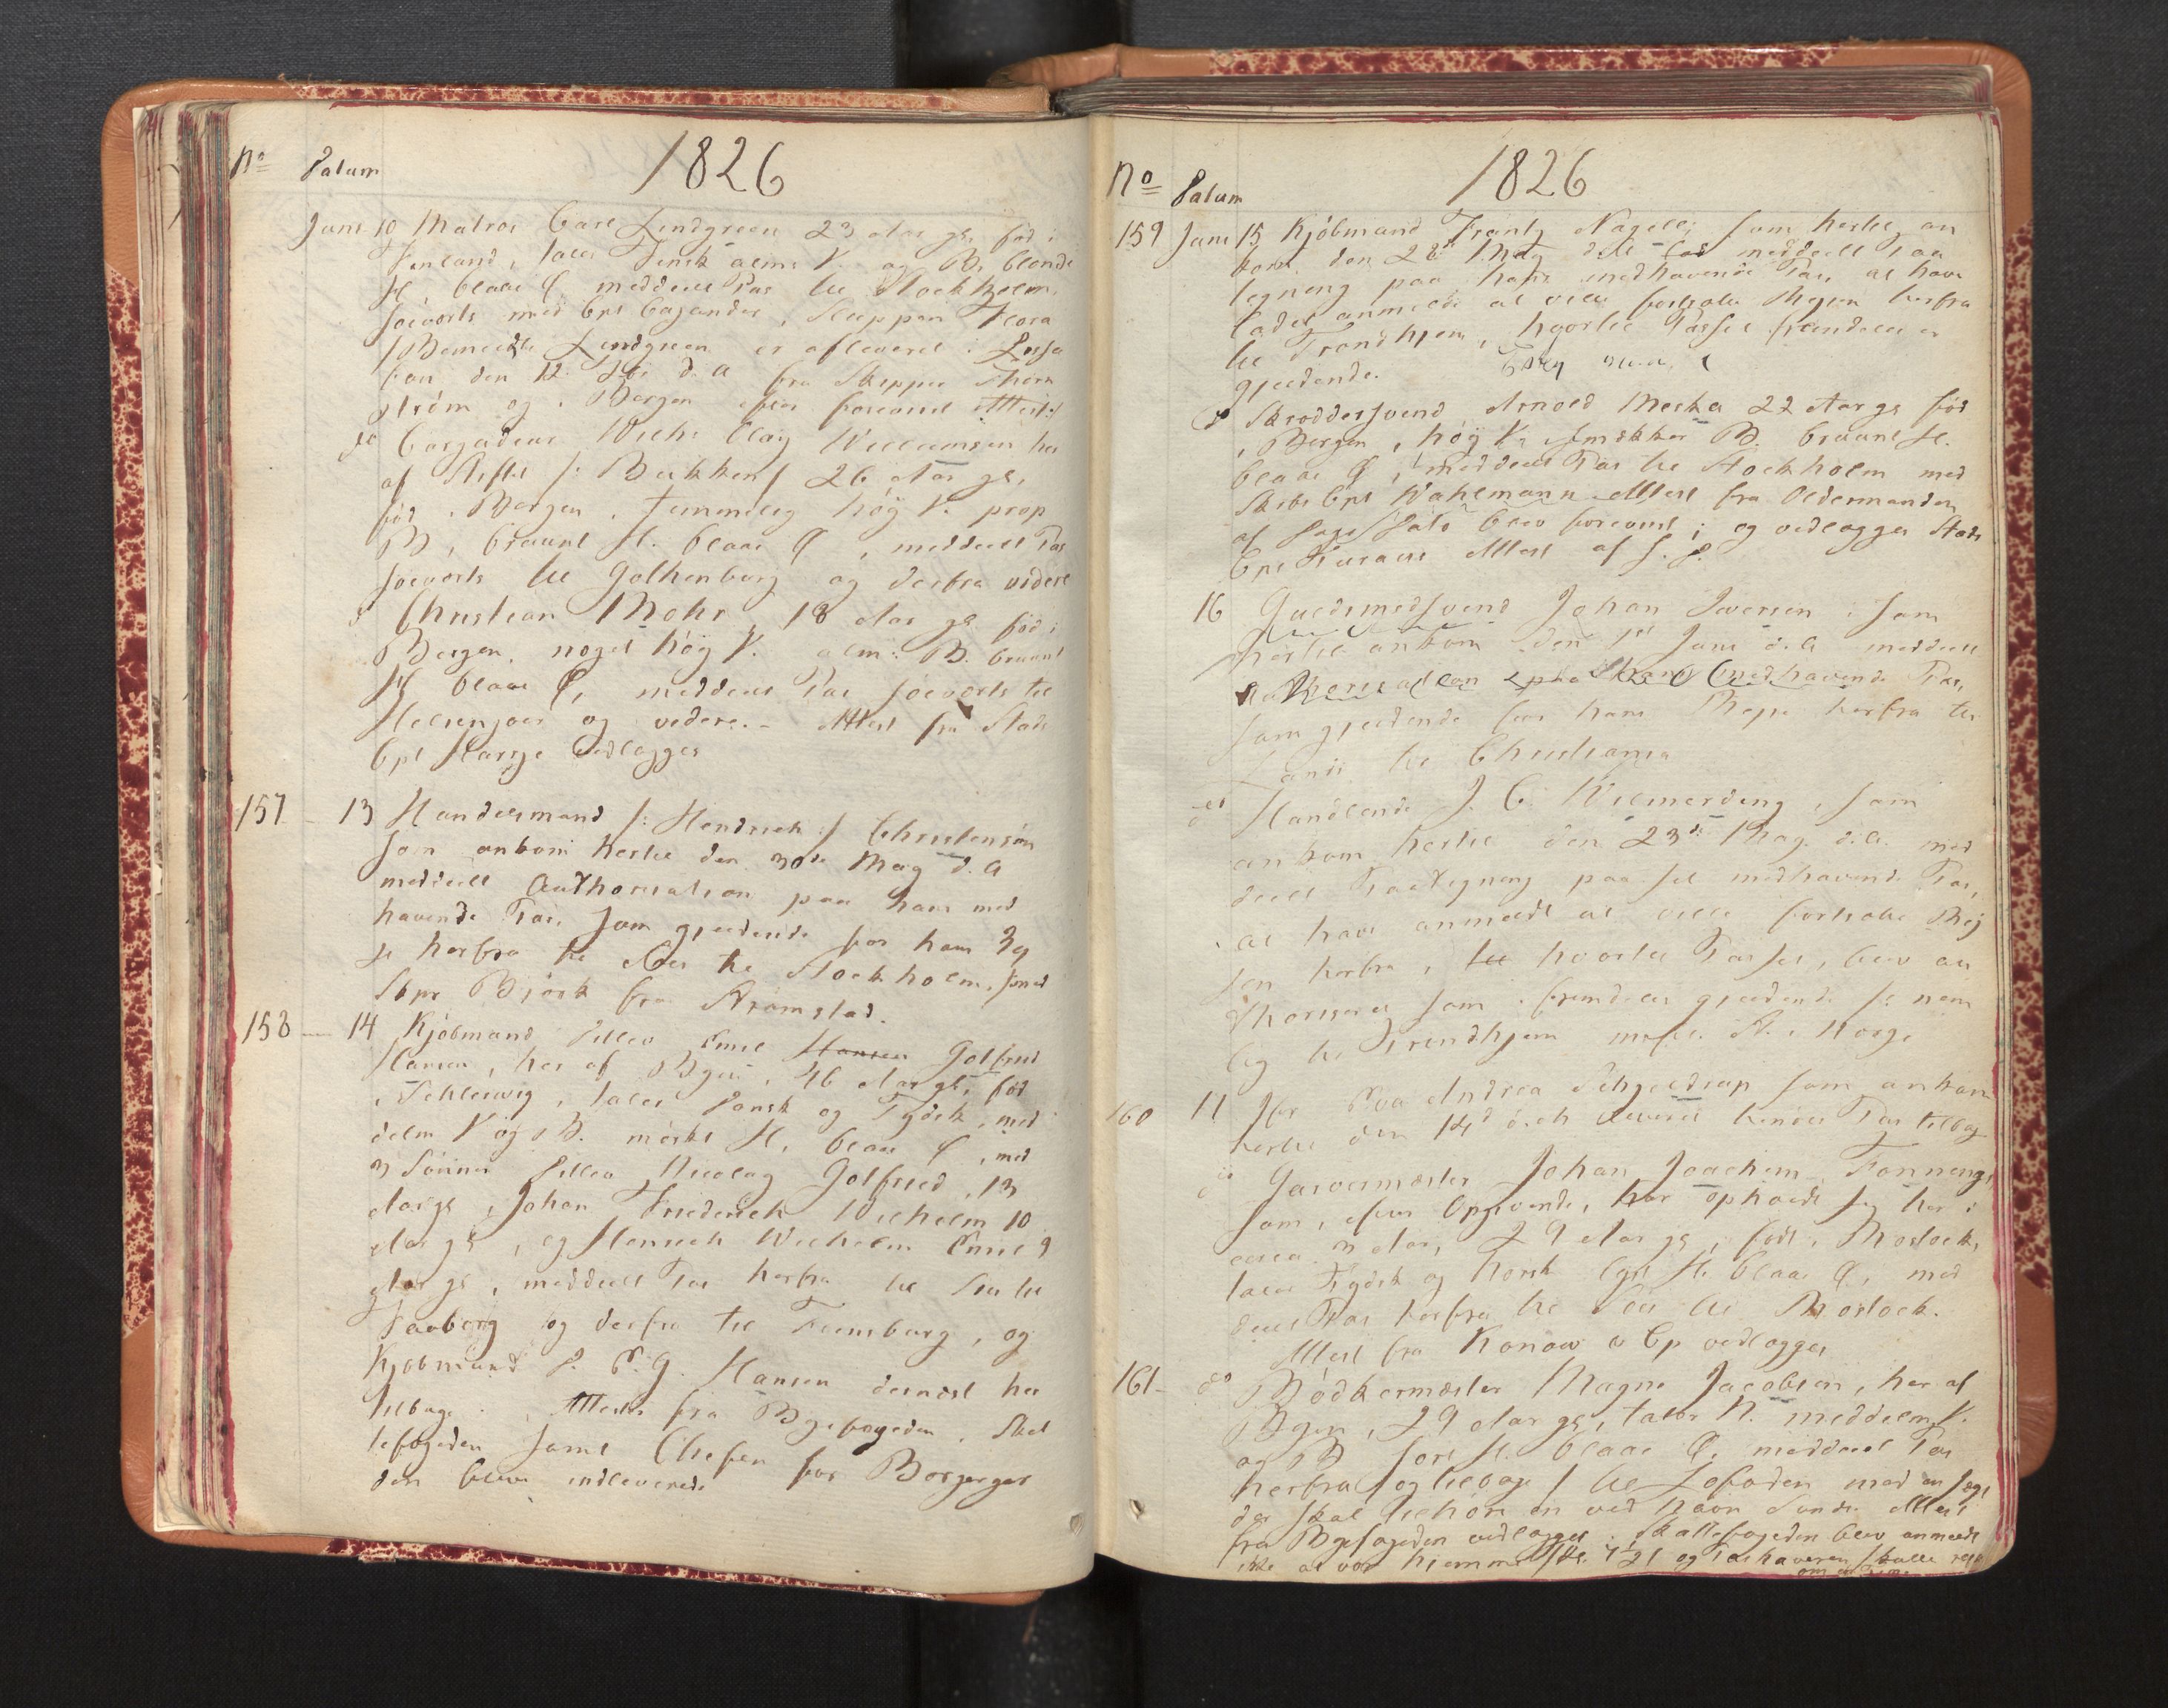 1826
No Datum
Juni 10 Matros Carl Lindgreen 23 Aar gl. fød i
Finland, taler Finsk alm: V. og B. blonde
H. blaae Ø meddeelt Pas til Stockholm
søeverts med Cpt Cajander, Skippen Flora
/: Bemeldte Lindgreen er afleveret i Lissa
bon den 12 d. A fra Skipper Thørn
strøm og i Bergen efter foreviist Attest :/
do Cargadeur Wilh: Clay Willumsen her
af Stiftet /: Bekken :/ 26 Aar gl,
fød i Bergen, temmelig høy V. prop
B, bruunt H. blaae Ø, meddeelt Pas
søeverts til Gothenborg og derfra videre
do Christian Mohr, 18 Aar gl fød i
Bergen, noget høy V. alm: B. bruunt
H blaae Ø, meddeelt Pas søeverts til
Helsingøer og videre. - Attest fra Stads
Cpt vedlægges
157 - 13 Handelsmand /: Hendrich :/ Christensøn
som ankom hertil den 30te May d. A
meddeelt Authorisation paa hans med
havende Pas, som gjeldende for ham
herfra til Søes til Stockholm, med
Skpr Bjørk fra Strømstad.
158 - 14 Kjøbmand Ditlev Emil Hansen Gotfried
Hansen, her af Byen, 46 Aar gl, fød
i Schleswig, taler Dansk og Tydsk, mid
delm V og B. mørkt H, blaae Ø, med
3 Sønner Ditlev Nicolay Gotfried, 13
Aar gl, Johan Friederich Wilhelm 10
Aar gl, og Henrich Wilhelm Emil 9
Aar gl, meddeelt Pas herfra til Søes til
Faaborg og derfra til Flensburg, og
Kjøbmand D. E. G. Hansen dernæst her
tilbage. Attester fra Byefogeden, Skat
tefogeden samt Chefen for Borgergar
den bleve indleverede
1826
No Datum
159 Juni 15 Kjøbmand Frantz Nagell, som hertil an
kom den 28 May lod meddeelt Paa
tegning paa hans medhavende Pas, at have
ladet anmelde at ville fortsætte Rejsen herfra
til Trondhjem, hvortil Passet fremdeles er
gjeldende.
do Skreddersvend Arnold Meska 22 Aar gl fød
i Bergen, høy V. smekker B. bruunt H.
blaae Ø, meddeelt Pas til Stockholm med
Skibs Cpt Wahlmann Attest fra Oldermanden
af Laug blev foreviist; og vedlægges Stads
Cpt Attest af S. D.
16 Guldsmedsvend Johan Iversen, som
hertil ankom den 1st Juni d. A meddeelt
Authorisation paa hans medhavende Pas,
som gjeldende for ham Rejse herfra til
Lands til Christiania
do Handlende J. C. Wilmerding, som
ankom hertil den 23de May d. A. med
deelt Paategning paa sit medhavende Pas,
at have anmeldt at ville fortsætte Rej
sen herfra, til hvortil Passet, blev au
thoriseret som fremdeles gjeldende /: nem
lig til Trondhjem
160 17 Jfr Eva Andrea Schjelderup som ankom
hertil den 14d leverede hendes Pas tilbage
do Garvermester Johan Joachim Fanning
som, efter Opgivende, har opholdt sig her i
circa 3 Aar, 29 Aar gl, født i Rostock,
taler Tydsk og Norsk lyst H. blaae Ø, med
deelt Pas herfra til Søes til Rostock.
Attest fra Konow & Cp vedlægges
161 - do Bødkermester Magne Jacobsen, her af
Byen, 29 Aar gl, taler N. middelm V.
og B sort H. blaae Ø, meddeelt Pas
herfra /: og tilbage :/ til Lofoden med en Jægt
der skal tilhøre en ved Navn Sande Attest
fra Byefogeden vedlægges. Skattefogeden blev anmeldt
ikke at være hjemme og Pashaveren skulle rejse